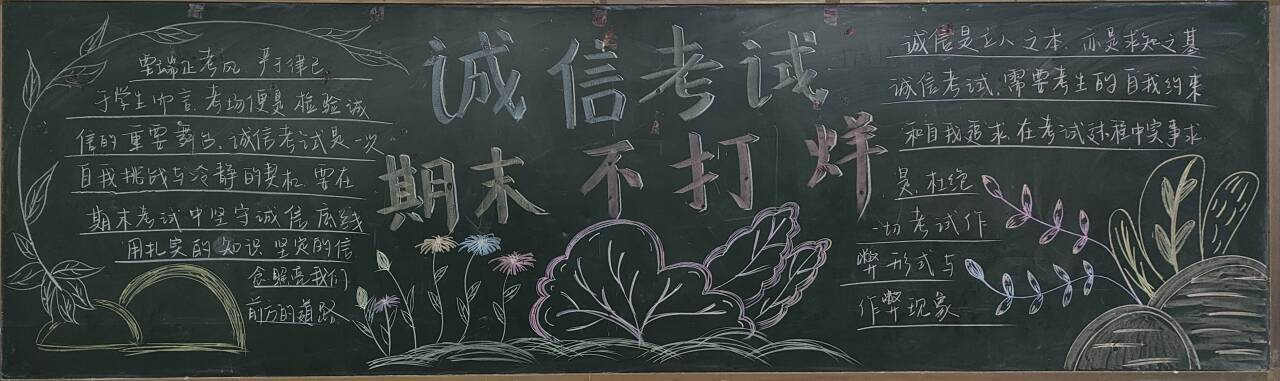 诚信考试
期末不打烊
要端正考风 严于律己
于学生而言,考场便是检验诚
信的重要舞台,诚信考试是一次
自我挑战与冷静的契机,要在
期末考试中坚守诚信底线
用扎实的知识 坚定的信
念照亮我们
前方的道路
诚信是立人之本,亦是求知之基
诚信考试,需要考生的自我约束
和自我追求,在考试过程中实事求
是,杜绝
一切考试作
弊形式与
作弊现象